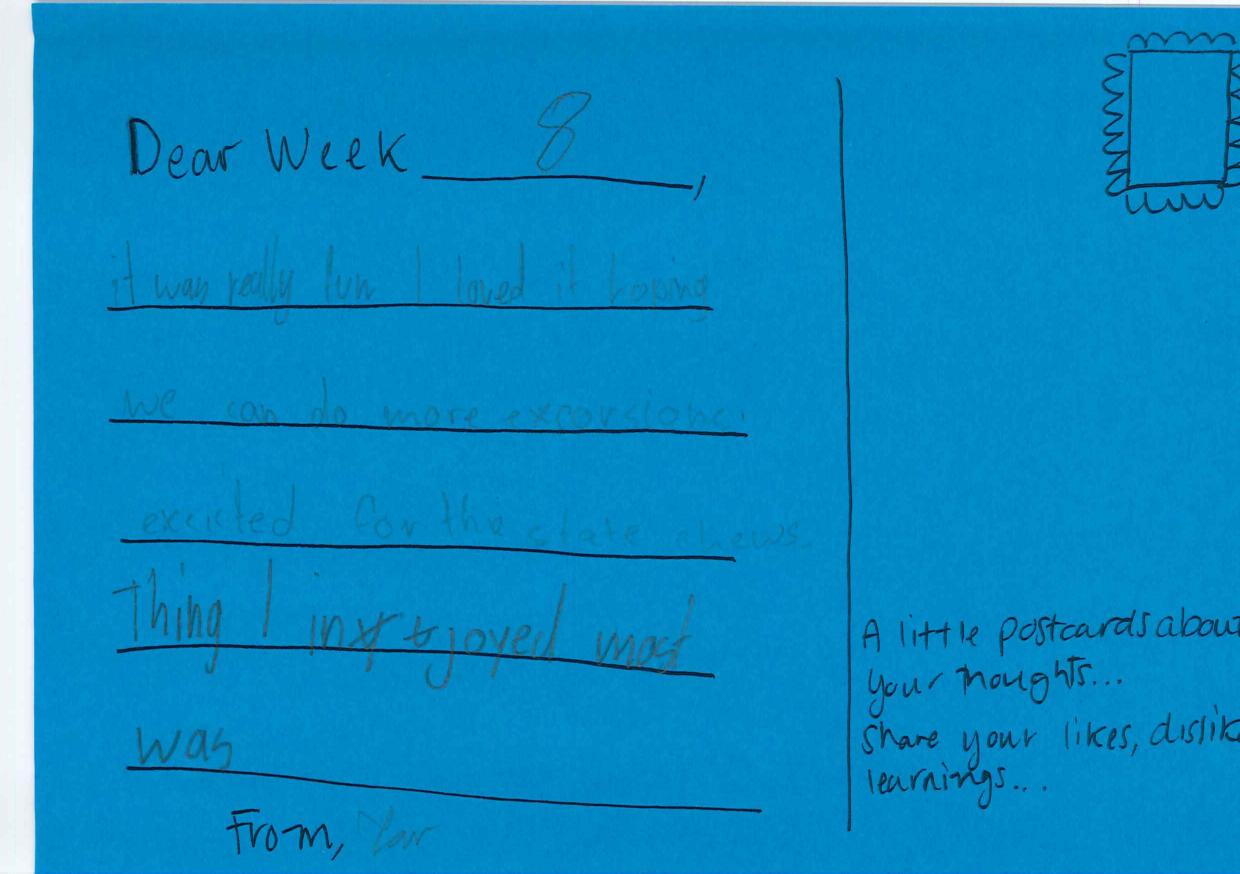 Dear Week 8,
it was really fun I loved it hoping
we can do more excorsions.
excicted for the state shews.
Thing I injoyed most
was
From, Yar
A little postcards about
your thoughts...
share your likes, dislik
learnings...